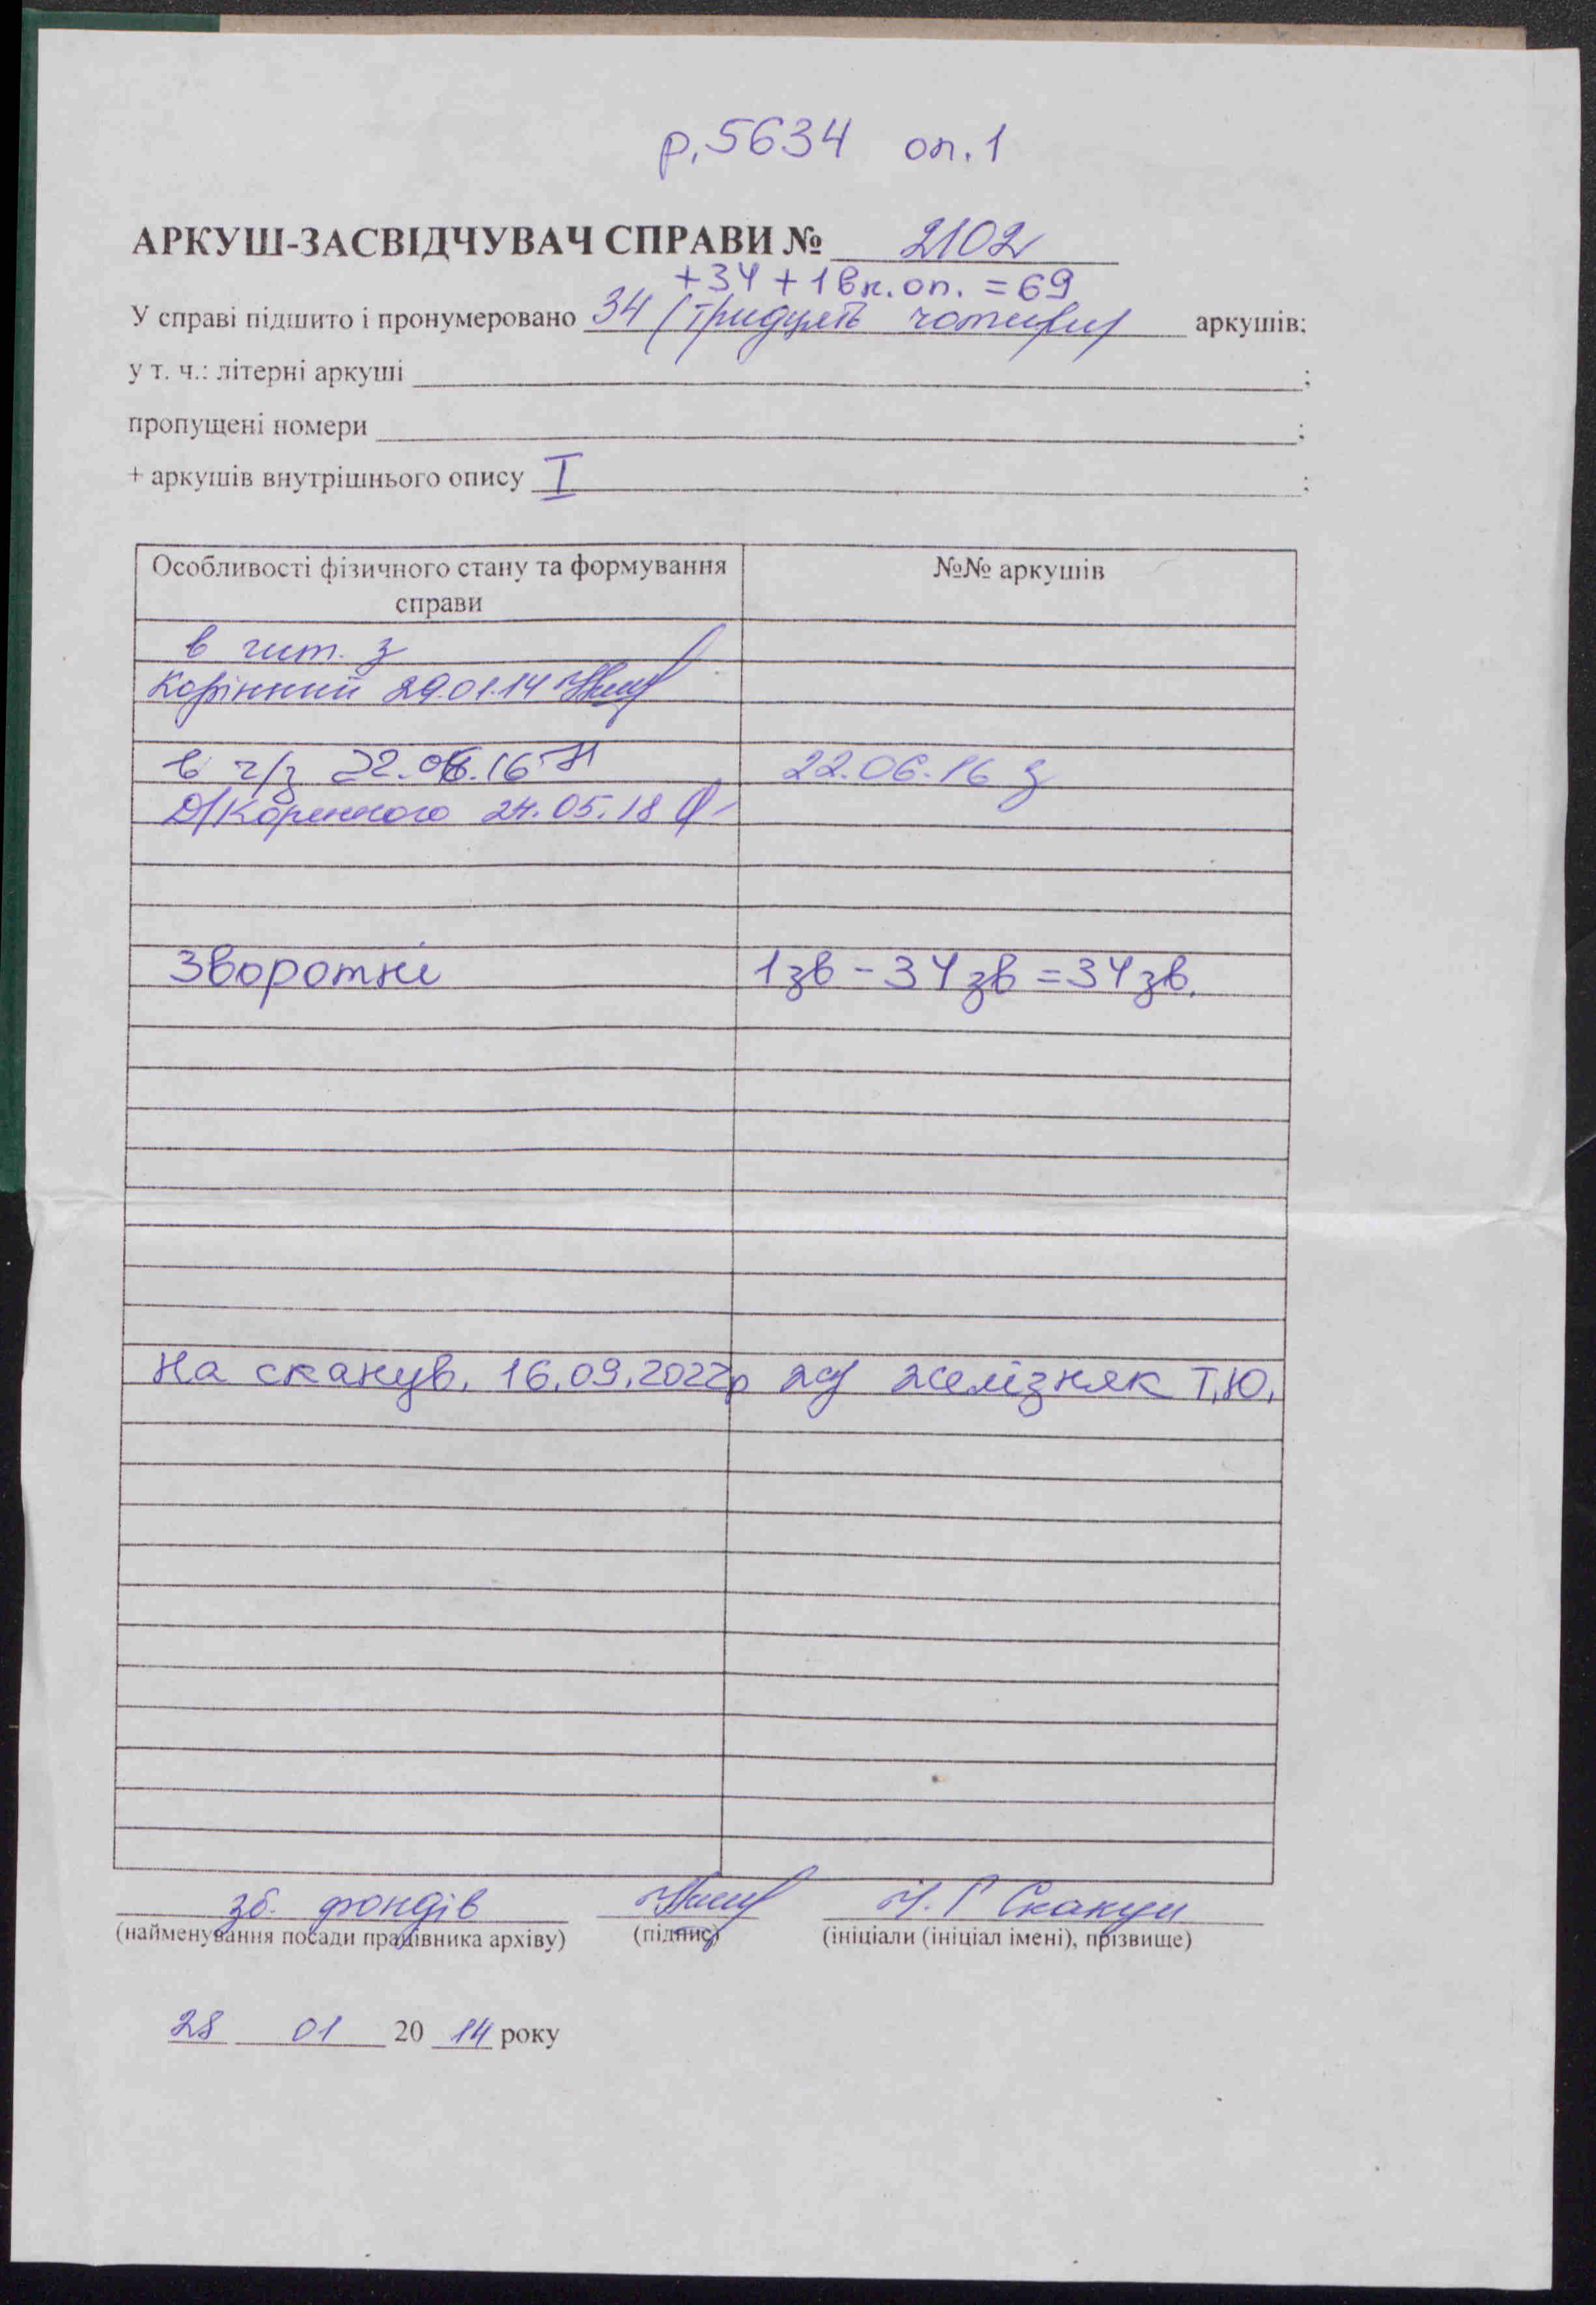 р.5634 оп.1
АРКУШ-ЗАСВІДЧУВАЧ СПРАВИ № 2102
+34 + 1 вн. оп. = 69
У справі підшито і пронумеровано 34 (тридцять чотири) аркушів;
у т. ч.: літерні аркуші ;
пропущені номери ;
+ аркушів внутрішнього опису I ;
Особливості фізичного стану та формування справи
№№ аркушів
в чит. з
Корінний 29.01.14
в ч/з 22.06.16
22.06.16
Д/Коренного 24.05.18
Зворотні 1зв - 34зв = 34зв.
На сканув. 16.09.2022р Желізняк Т.Ю.
зб. фондів
Скакун
(найменування посади працівника архіву) (підпис) (ініціали (ініціал імені), прізвище)
28 01 2014 року